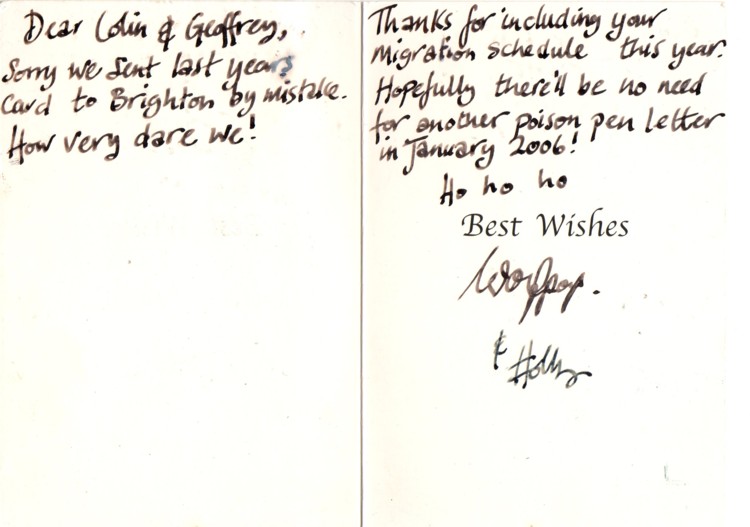 Dear Colin & Geoffrey,
Sorry we sent last years
Card to Brighton by mistake.
How very dare we!
Thanks for including your
Migration schedule this year.
Hopefully there'll be no need
for another poison pen letter
in January 2006!
Ho ho ho
Best Wishes
& Holly